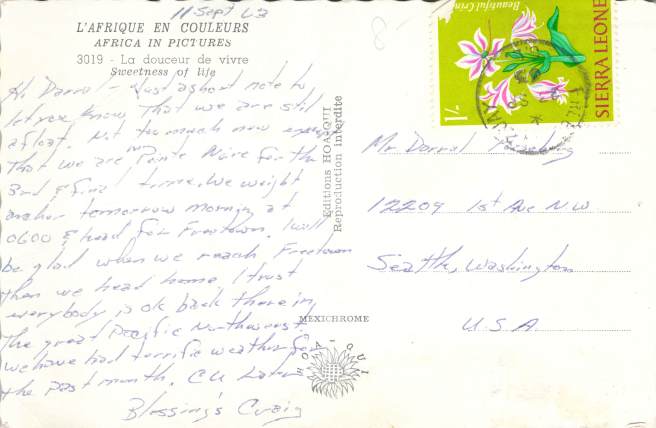 11 Sept 63
L'AFRIQUE EN COULEURS
AFRICA IN PICTURES
3019 - La douceur de vivre
Sweetness of life
Hi Darral - Just a short note to
let you know that we are still
afloat. Not too much new except
that we are in Pointe Noire for the
3rd & final time. We weight
anchor tomorrow morning at
0600 & head for Freetown. I will
be glad when we reach Freetown
then we head home. I trust
everybody is ok back there in
the great Pacific Northwest.
We have had terrific weather for
the past month. CU Later
Blessing's Craig
Editions HOA-QUI
Reproduction interdite
MEXICHROME
HOA-QUI
Beautiful Crin
1/-
SIERRA LEONE
Mr Darral
12209 1st Ave NW
Seattle, Washington
U.S.A.